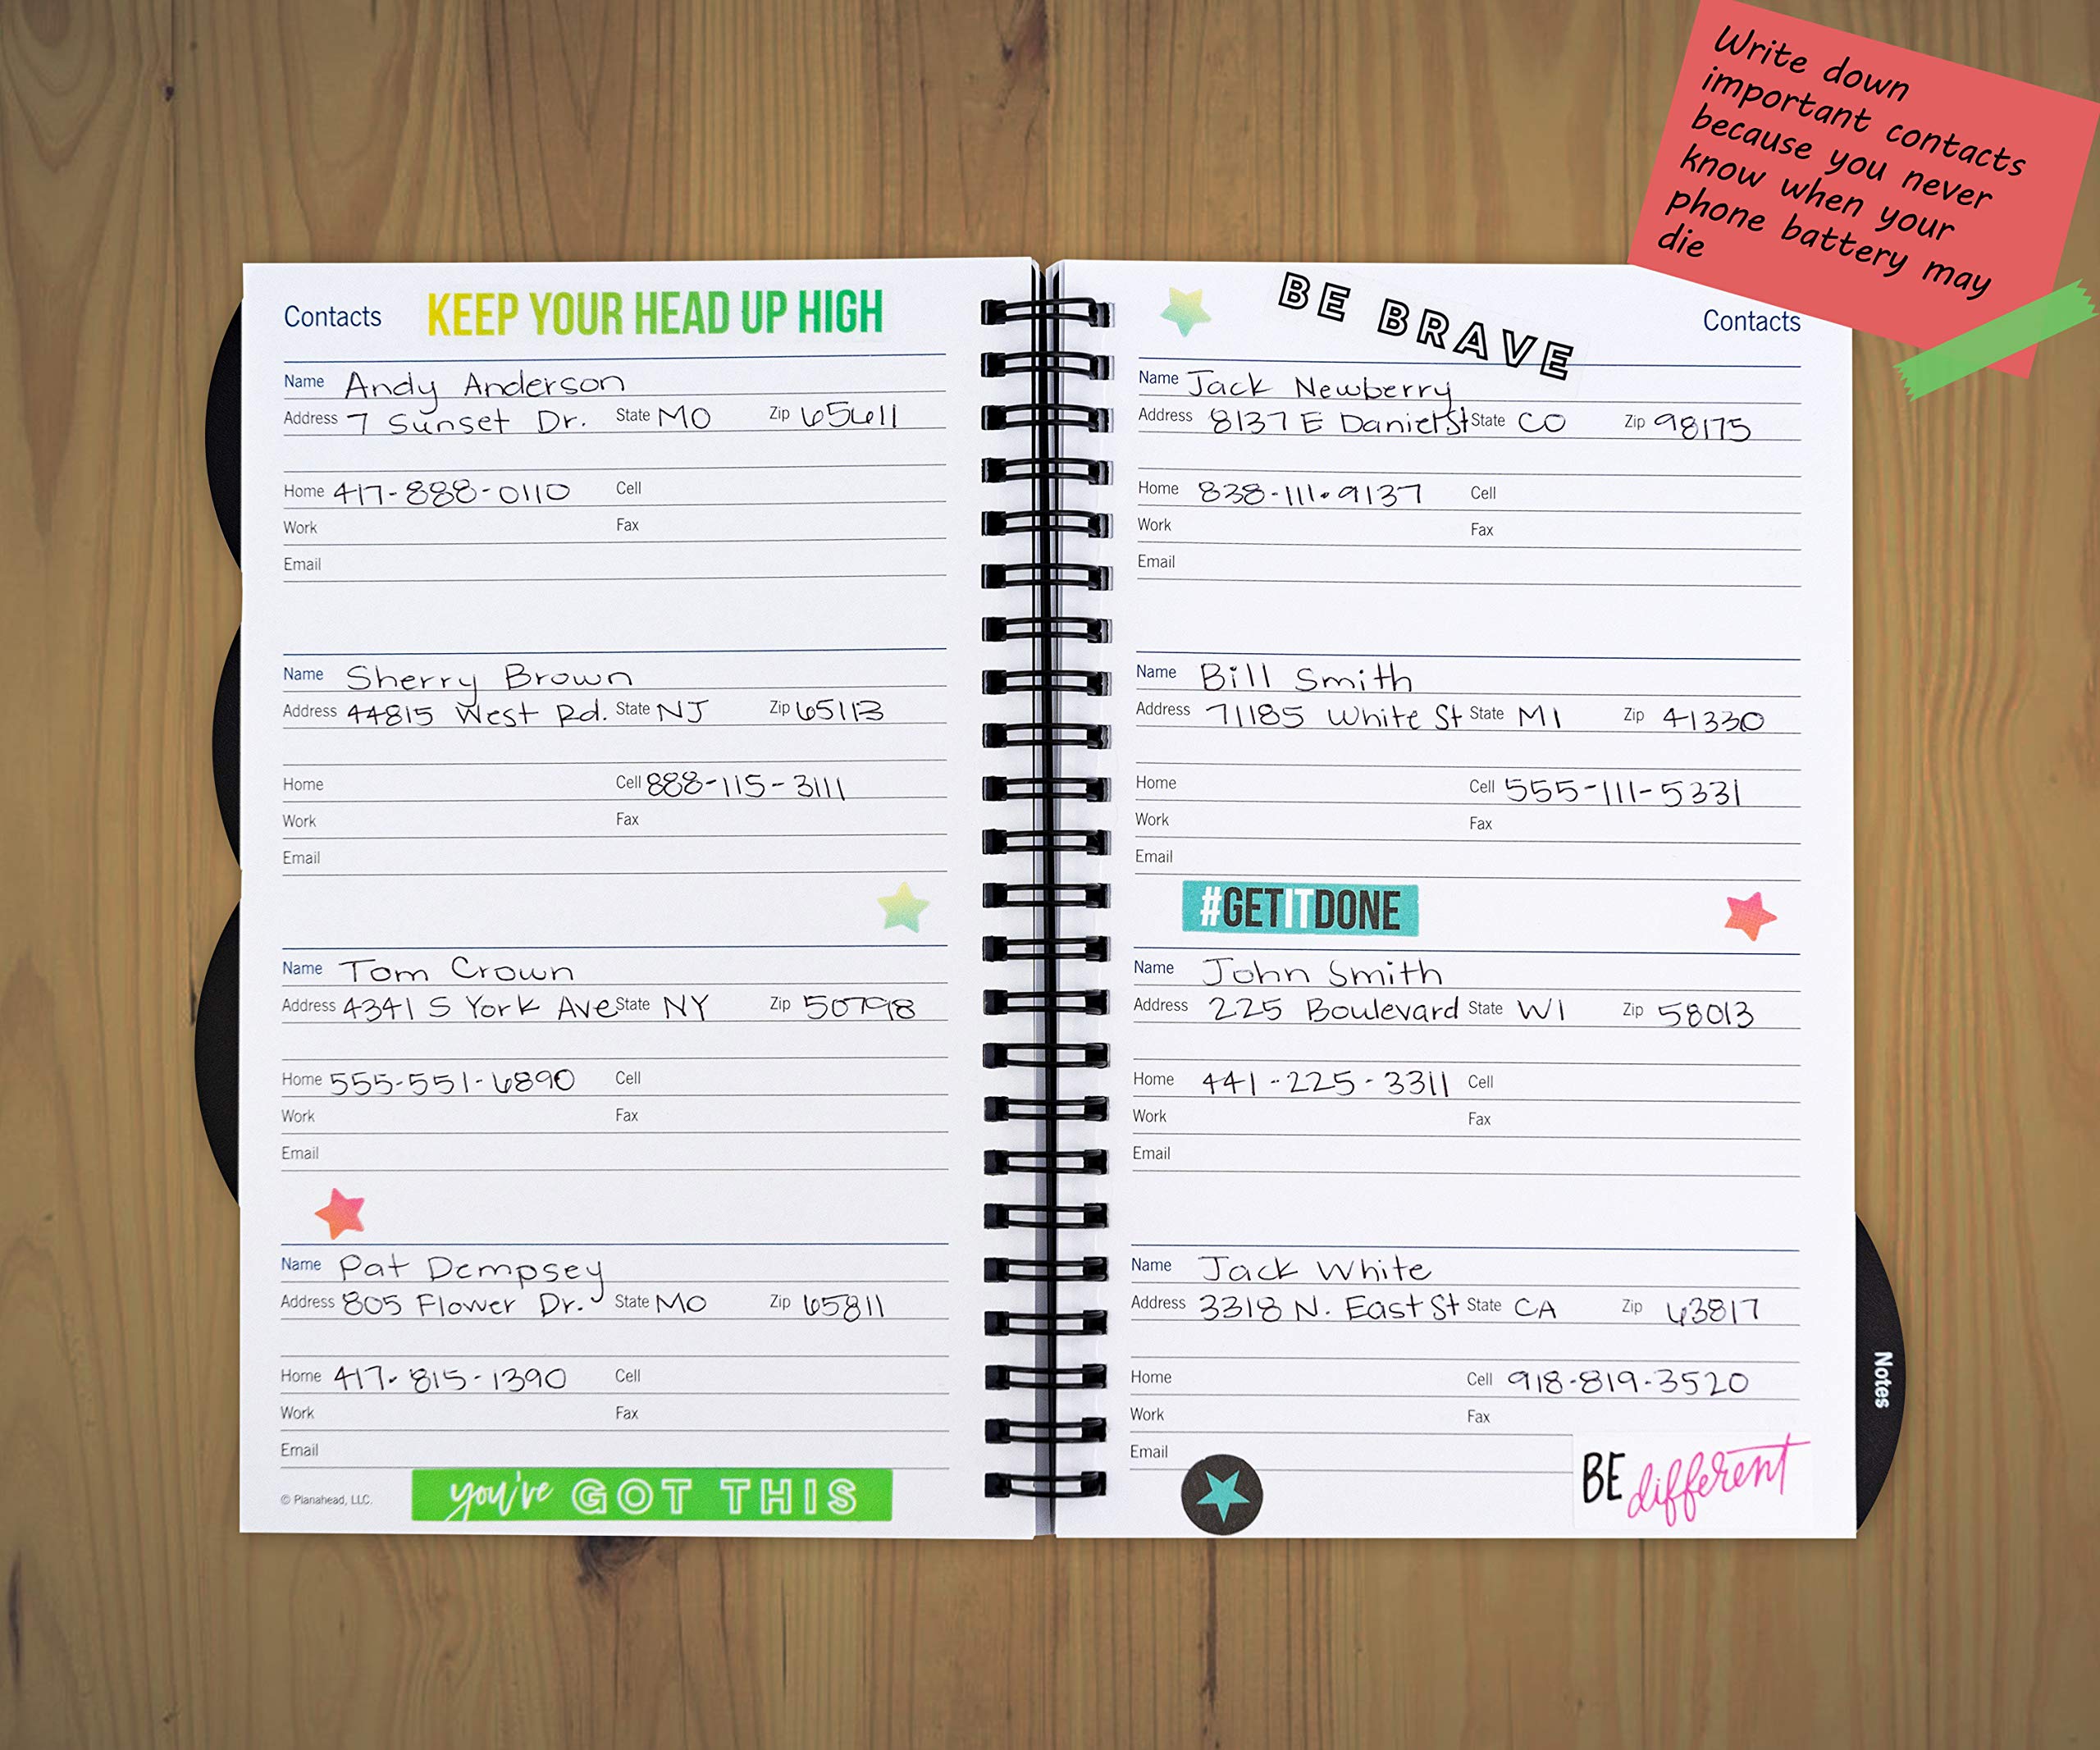 Write down
important contacts
because you never
know when your
phone battery may
die
Contacts KEEP YOUR HEAD UP HIGH
Name Andy Anderson
Address 7 Sunset Dr. State MO Zip 65611
Home 417-888-0110 Cell
Work Fax
Email
Name Sherry Brown
Address 44815 West Rd. State NJ Zip 65113
Home Cell 888-115-3111
Work Fax
Email
Name Tom Crown
Address 4341 S York Ave State NY Zip 50798
Home 555-551-6890 Cell
Work Fax
Email
Name Pat Dempsey
Address 805 Flower Dr. State MO Zip 65811
Home 417-815-1390 Cell
Work Fax
Email
© Planahead, LLC. you've GOT THIS
BE BRAVE Contacts
Name Jack Newberry
Address 8137 E Daniel St State CO Zip 98175
Home 838-111-9137 Cell
Work Fax
Email
Name Bill Smith
Address 71185 White St State MI Zip 41330
Home Cell 555-111-5331
Work Fax
Email
#GETITDONE
Name John Smith
Address 225 Boulevard State WI Zip 58013
Home 441-225-3311 Cell
Work Fax
Email
Name Jack White
Address 3318 N. East St State CA Zip 63817
Home Cell 918-819-3520
Work Fax
Email
BE different
Notes